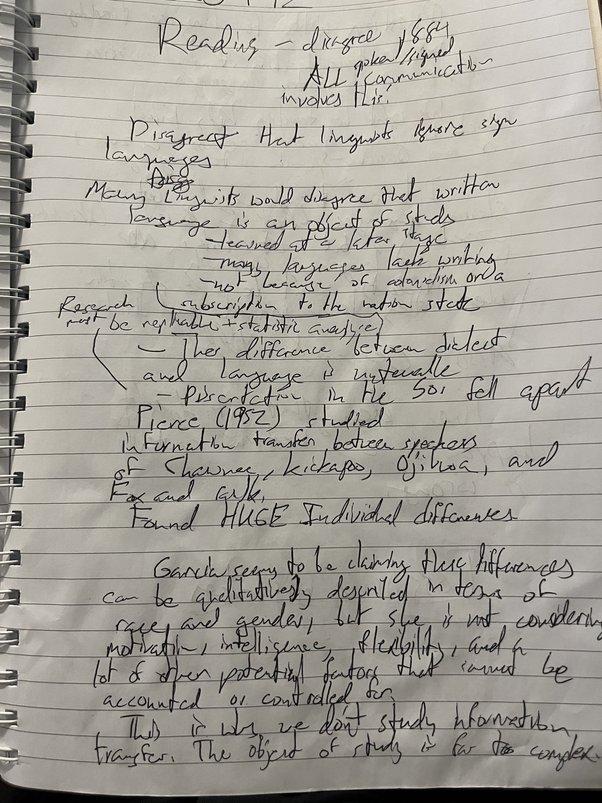 Reading - disagree 1884
spoken/signed
ALL communication
involves this!
Disagreet that linguists ignore sign
languages
Many Linguists would disagree that written
language is an object of study
-learned at a later stage
-many languages lack writing
-not because of colonialism or a
subscription to the nation state
Research
must be replicable + statistic analysis
- The difference between dialect
and language is
- Dissertation in the 50s fell apart
Pierce (1952) studied
information transfer between speakers
of Shawnee, Kickapoo, Ojibwa, and
Fox and
Found HUGE Individual differences
Garcia seems to be claiming these differences
can be qualitatively described in terms of
race, and gender, but she is not considering
motivation, intelligence, flexibility, and a
lot of other potential factors that cannot be
accounted or controlled for.
This is why we don't study information
transfer. The object of study is far too complex.